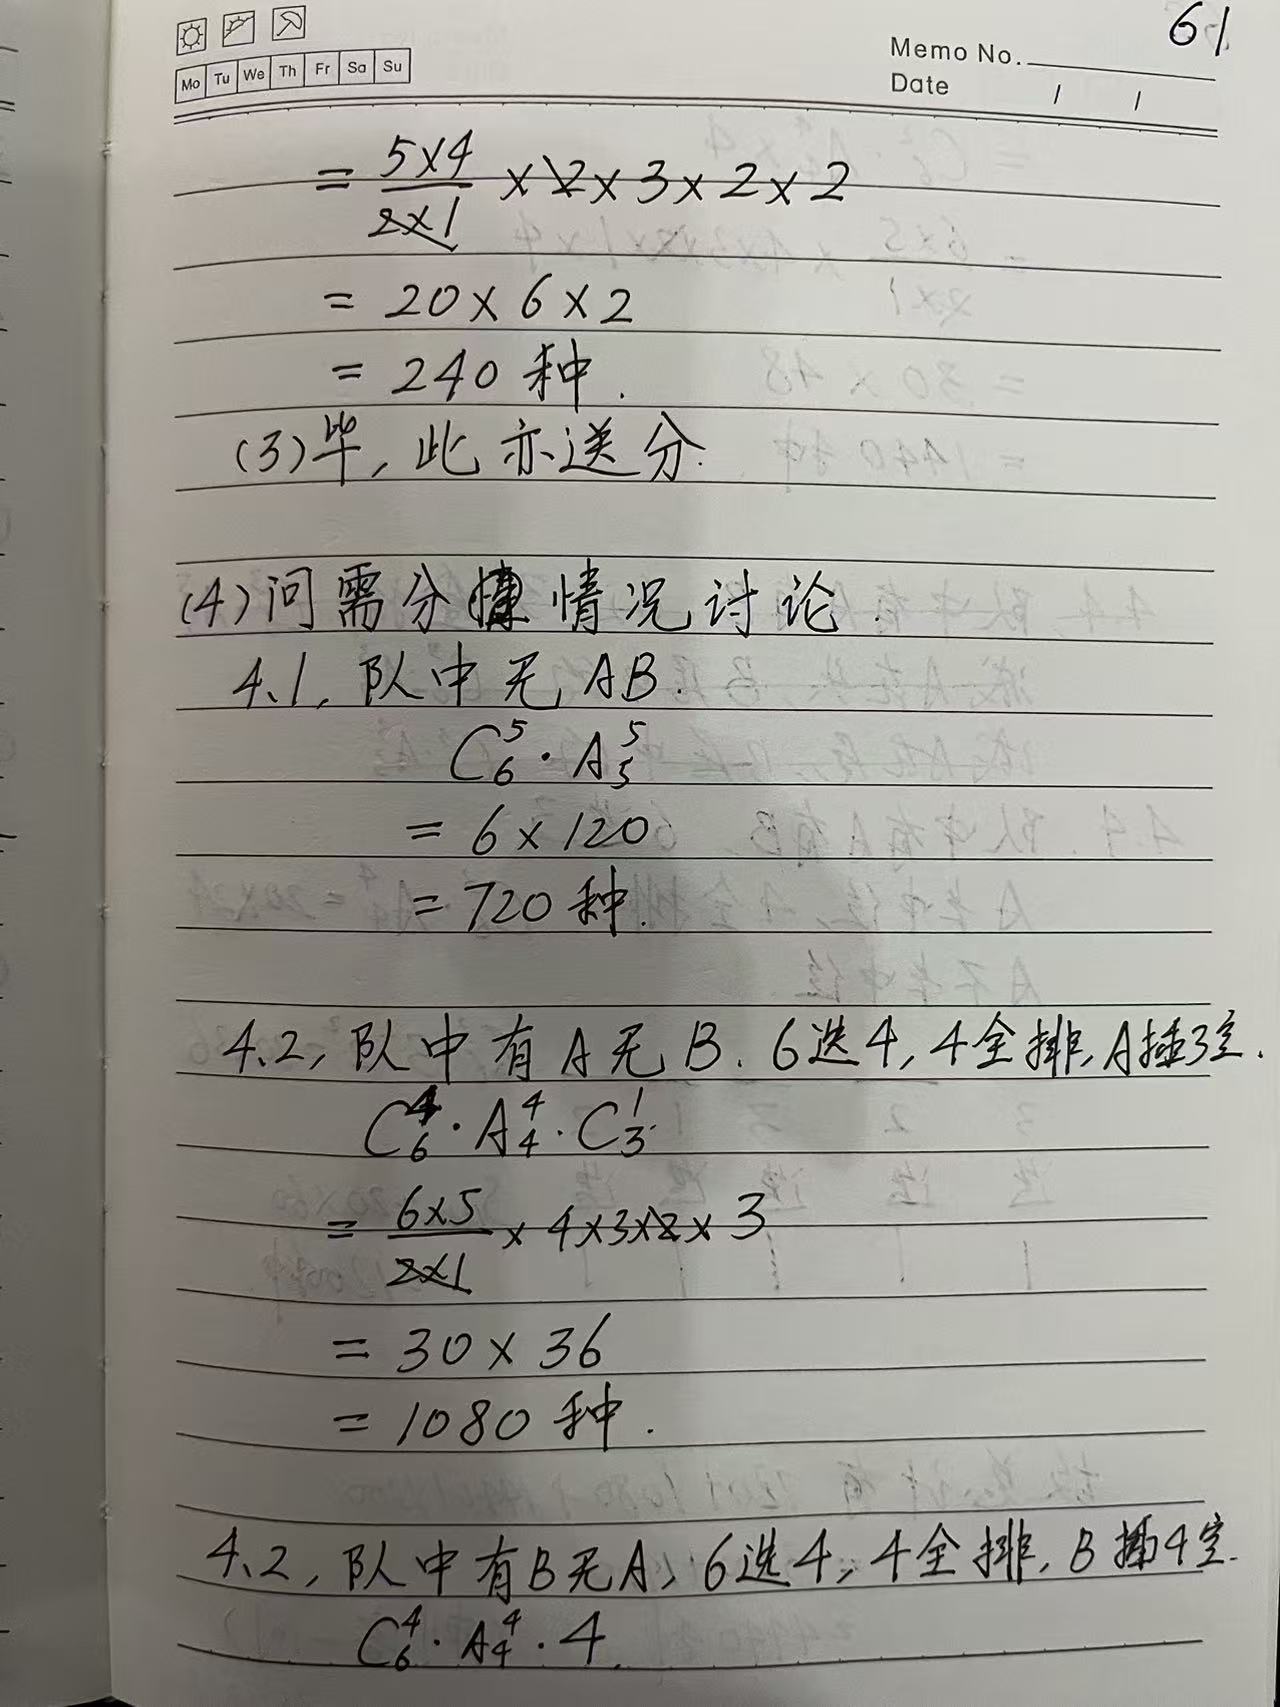 61
Memo No.
Date / /
Mo Tu We Th Fr Sa Su
= 5×4/2×1 × 2 × 3 × 2 × 2
= 20 × 6 × 2
= 240 种.
(3)毕, 此亦送分.
(4)问需分 情况讨论.
4.1, 队中无AB.
C₆⁵ · A₅⁵
= 6 × 120
= 720 种.
4.2, 队中有A无B. 6选4, 4全排, A插3空.
C₆⁴ · A₄⁴ · C₃¹
= 6×5/2×1 × 4×3×2 × 3
= 30 × 36
= 1080 种.
4.2, 队中有B无A, 6选4, 4全排, B插4空.
C₆⁴ · A₄⁴ · 4.